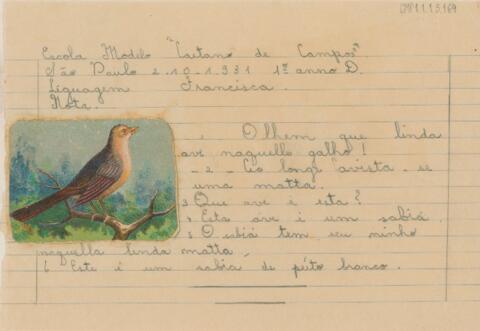 CMP1.1.5.169
Escola Modelo "Caetano de Campos".
São Paulo 2.10.1931 1º anno D.
Liguagem Francisca.
Nota.
1 Olhem que linda
ave naquelle galho!
- 2 - Ao longe avista-se
uma matta.
3 Que ave é esta?
4 Esta ave é um sabiá.
5 O sabiá tem seu ninho
naquella linda matta.
6 Este é um sabia de peito branco.